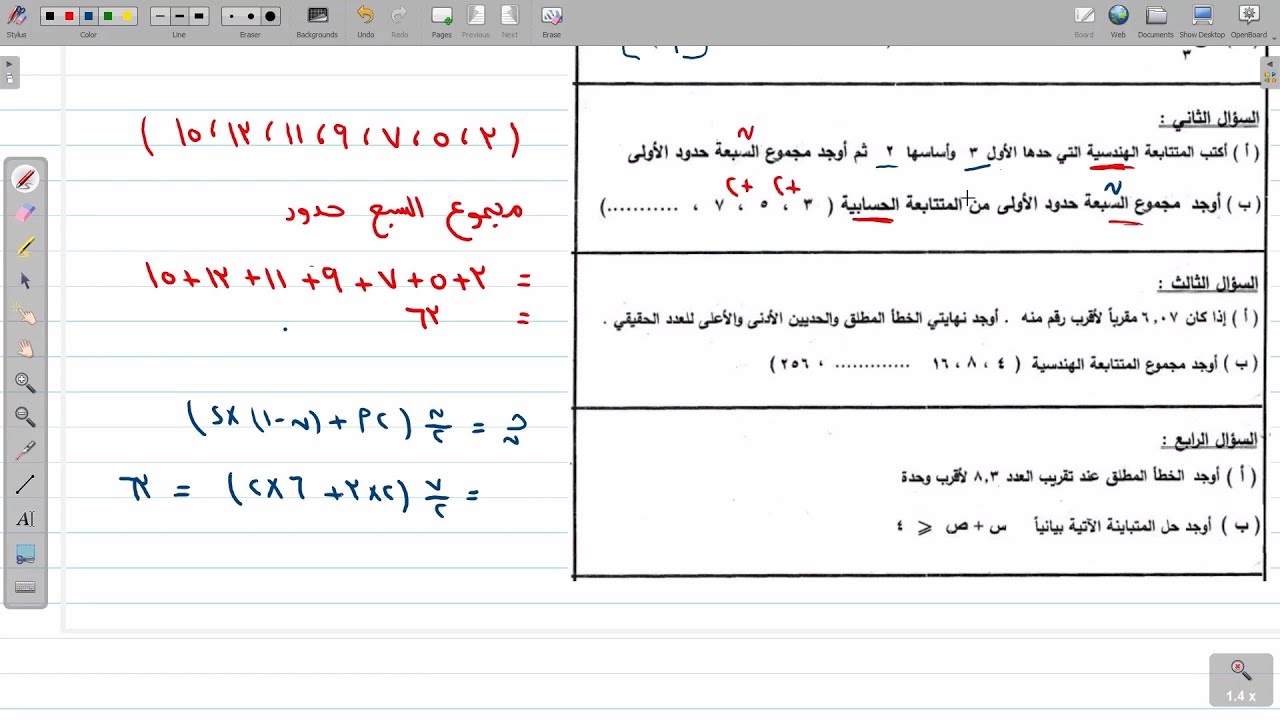 Stylus Color Line Eraser Backgrounds Undo Redo Pages Previous Next Erase Board Web Documents Show Desktop OpenBoard
السؤال الثاني :
( أ ) أكتب المتتابعة الهندسية التي حدها الأول ٣ وأساسها ٢ ثم أوجد مجموع السبعة حدود الأولى
( ب ) أوجد مجموع السبعة حدود الأولى من المتتابعة الحسابية ( ٣ ، ٥ ، ٧ ، ...........)
السؤال الثالث :
( أ ) إذا كان ٦,٠٧ مقرباً لأقرب رقم منه . أوجد نهايتي الخطأ المطلق والحديين الأدنى والأعلى للعدد الحقيقي .
( ب ) أوجد مجموع المتتابعة الهندسية ( ٤ ، ٨ ، ١٦ ............. ، ٢٥٦ )
السؤال الرابع :
( أ ) أوجد الخطأ المطلق عند تقريب العدد ٨,٣ لأقرب وحدة
( ب ) أوجد حل المتباينة الآتية بيانياً س + ص ⩾ ٤
( ٣ ، ٥ ، ٧ ، ٩ ، ١١ ، ١٣ ، ١٥ )
مجموع السبع حدود
= ٣ + ٥ + ٧ + ٩ + ١١ + ١٣ + ١٥
= ٦٣
جـ ن = ن/٢ ( ٢أ + (ن - ١) × د )
= ٧/٢ ( ٢×٣ + ٦×٢ ) = ٦٣
1.4 x